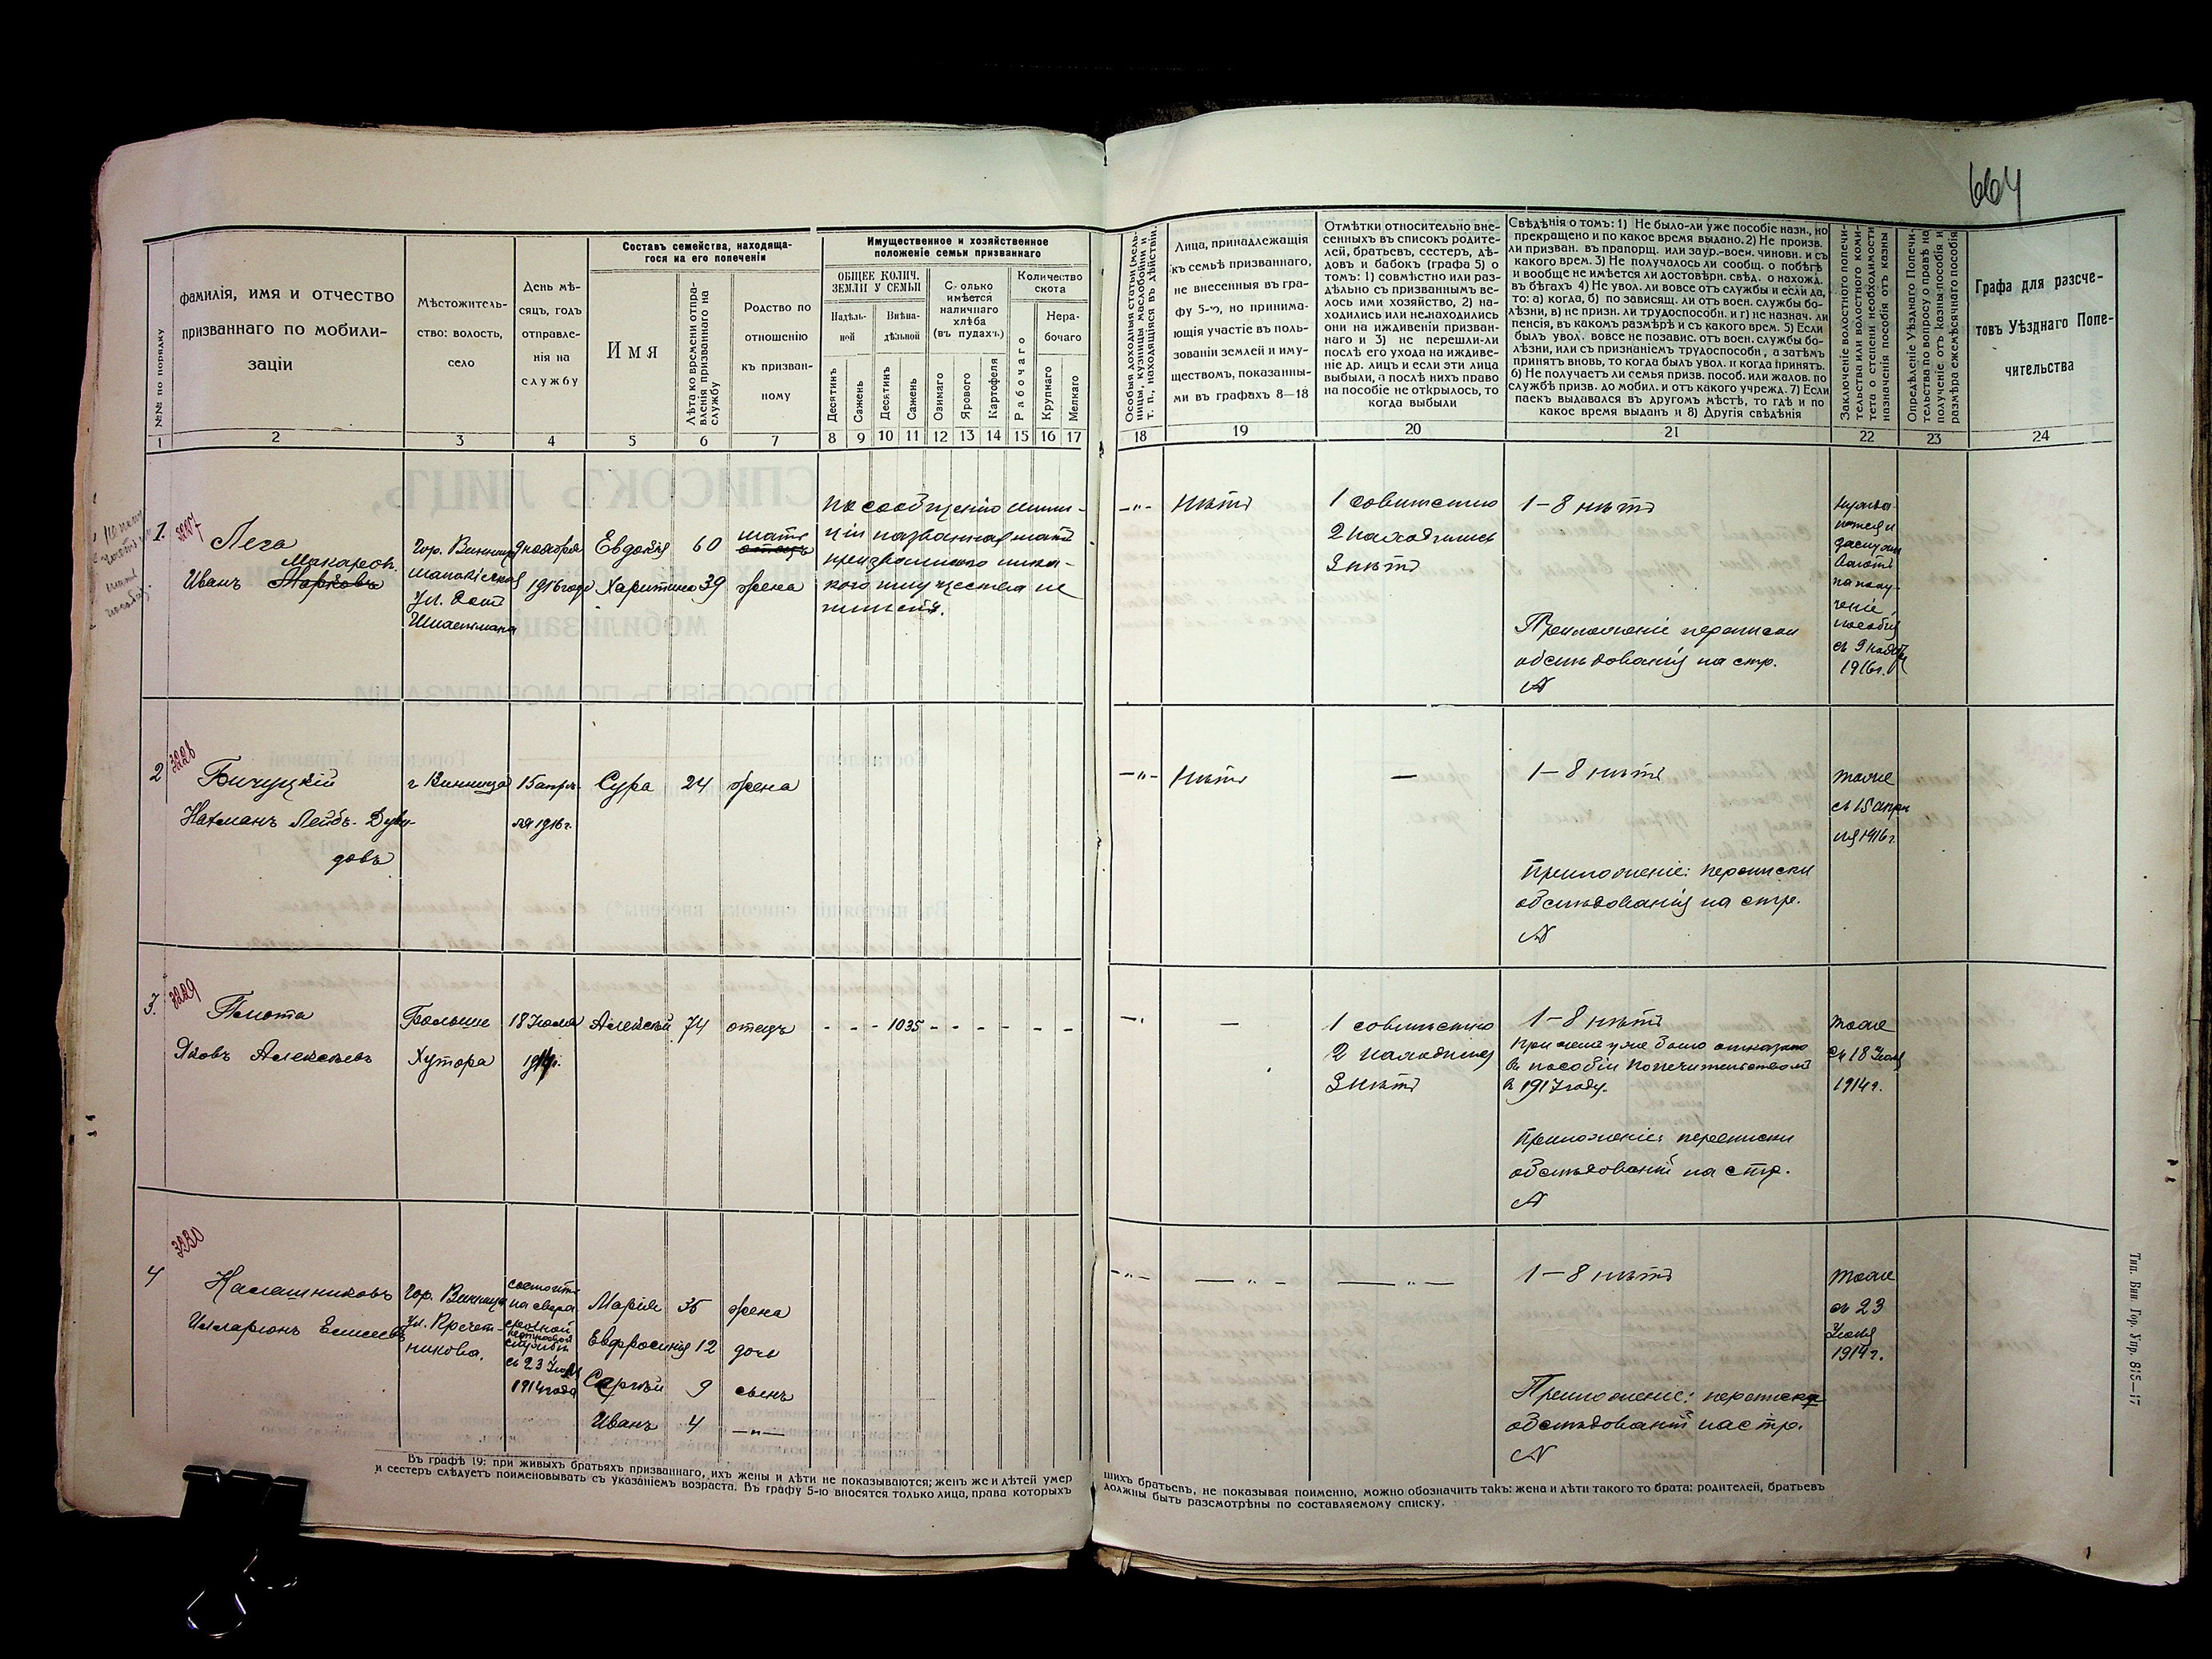 664
№№ по порядку
фамилія, имя и отчество
призваннаго по мобили-
заціи
Мѣстожитель-
ство: волость,
село
День мѣ-
сяцъ, годъ
отправле-
нія на
службу
Составъ семейства, находяща-
гося на его попеченіи
Имя
Лѣта ко времени отпра-
вленія призваннаго на
службу
Родство по
отношенію
къ призван-
ному
Имущественное и хозяйственное
положеніе семьи призваннаго
ОБЩЕЕ КОЛИЧ.
ЗЕМЛИ У СЕМЬИ
Надѣль-
ной
Внѣна-
дѣльной
Десятинъ
Сажень
Десятинъ
Сажень
С-олько
имѣется
наличнаго
хлѣба
(въ пудахъ.)
Озимаго
Яровою
Картофеля
Количество
скота
Рабочаго
Нера-
бочаго
Крупнаго
Мелкаго
Особыя доходныя статьи (мель-
ницы, кузницы маслобойни и
т. п., находящіяся въ дѣйствіи.
Лица, принадлежащія
къ семьѣ призваннаго,
не внесенныя въ гра-
фу 5-ю, но принима-
ющія участіе въ поль-
зованіи землей и иму-
ществомъ, показанны-
ми въ графахъ 8—18
Отмѣтки относительно вне-
сенныхъ въ списокъ родите-
лей, братьевъ, сестеръ, дѣ-
довъ и бабокъ (графа 5) о
томъ: 1) совмѣстно или раз-
дѣльно съ призваннымъ ве-
лось ими хозяйство, 2) на-
ходились или не находились
они на иждивеніи призван-
наго и 3) не перешли-ли
послѣ его ухода на иждиве-
ніе др. лицъ и если эти лица
выбыли, а послѣ нихъ право
на пособіе не открылось, то
когда выбыли
Свѣдѣнія о томъ: 1) Не было-ли уже пособіе назн., но
прекращено и по какое время выдано. 2) Не произв.
ли призван. въ прапорщ. или заур.-воен. чиновн. и съ
какого врем. 3) Не получалось ли сообщ. о побѣгѣ
и вообще не имѣется ли достовѣрн. свѣд. о нахожд.
въ бѣгахъ 4) Не увол. ли вовсе отъ службы и если да,
то: а) когда, б) по зависящ. ли отъ воен. службы бо-
лѣзни, в) не призн. ли трудоспособн. и г) не назнач. ли
пенсія, въ какомъ размѣрѣ и съ какого врем. 5) Если
былъ увол. вовсе не позавис. отъ воен. службы бо-
лѣзни, или съ признаніемъ трудоспособн, а затѣмъ
принятъ вновь, то когда былъ увол. и когда принятъ.
6) Не получаетъ ли семья призв. пособ. или жалов. по
службѣ призв. до мобил. и отъ какого учрежд. 7) Если
паекъ выдавался въ другомъ мѣстѣ, то гдѣ и по
какое время выданъ и 8) Другія свѣдѣнія
Заключеніе волостного попечи-
тельства или волостного коми-
тета о степени необходимости
назначенія пособія отъ казны
Опредѣленіе Уѣзднаго Попечи-
тельства по вопросу о правѣ на
полученіе отъ казны пособія и
размѣра ежемѣсячнаго пособія
Графа для разсче-
товъ Уѣзднаго Попе-
чительства
1 2 3 4 5 6 7 8 9 10 11 12 13 14 15 16 17 18 19 20 21 22 23 24
1.
Лега
Макаров.
Иванъ Марковъ
Гор. Винница
ул. Домъ
9 ноября
1916 года
Евдокія 60 мать
отецъ
Харитина 39 жена
по сообщенію мили-
ціи названная мать
призваннаго ника-
кого имущества не
имѣетъ.
—"—
Нѣтъ
1 совмѣстно
2 находились
3 нѣтъ
1—8 нѣтъ
Приложеніе переписки
обслѣдованія на стр.
№
пособія
съ 9 нояб
1916 г.
2
3228
Бичуцкій
Нахманъ Лейбъ-Дуви-
довъ
г Винница
15 апрѣ-
ля 1916 г.
Сура 24 жена
—"—
Нѣтъ
—
1—8 нѣтъ
Приложеніе: переписки
обслѣдованія на стр.
№
тоже
съ 15 апрѣ
ля 1916 г.
3.
3229
Плюта
Яковъ Алексѣевъ
Больше
Хутора
18 Іюля
1914 г.
Алексѣй 74 отецъ
- - - 1035 - - - - - -
—
1 совмѣстно
2 находился
3 нѣтъ
1—8 нѣтъ
въ пособіи попечительствомъ
въ 1917 году.
Приложеніе: переписки
обслѣдованій на стр.
№
тоже
съ 18 Іюля
1914 г.
4
3230
Калашниковъ
Илларіонъ Елисеевъ
Гор. Винница
ул.
состоитъ
на сверх
срочной
службѣ
съ 23 Іюля
1914 года
Марія 35 жена
Евфросинія 12 дочь
Сергѣй 9 сынъ
Иванъ 4 —"—
—"—
— " —
— " —
1—8 нѣтъ
Приложеніе: переписка
обслѣдованій на стр.
№
тоже
съ 23
Іюля
1914 г.
Въ графѣ 19: при живыхъ братьяхъ призваннаго, ихъ жены и дѣти не показываются; женъ же и дѣтей умер
шихъ братьевъ, не показывая поименно, можно обозначить такъ: жена и дѣти такого то брата; родителей, братьевъ
и сестеръ слѣдуетъ поименовывать съ указаніемъ возраста. Въ графу 5-ю вносятся только лица, права которыхъ
должны быть разсмотрѣны по составляемому списку.
Тип. Вин. Гор. Упр. 815—17